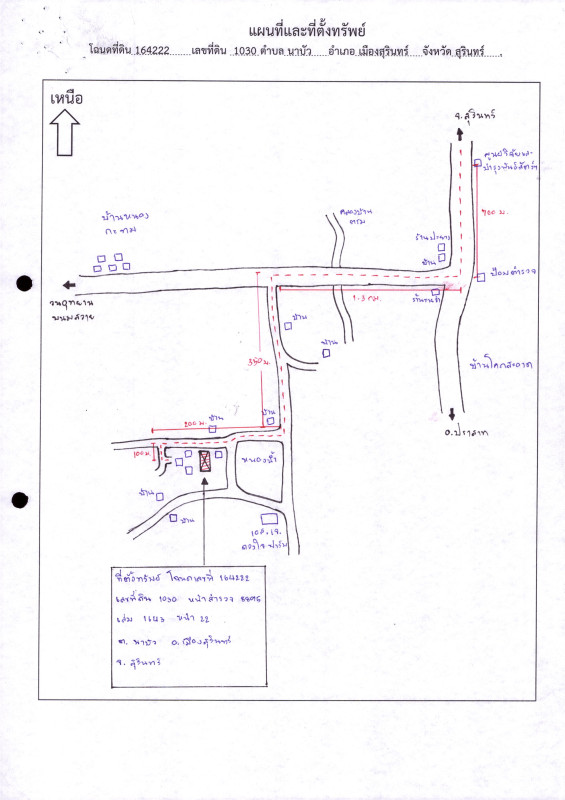 แผนที่และที่ตั้งทรัพย์
โฉนดที่ดิน 164222 เลขที่ดิน 1030 ตำบล นาบัว อำเภอ เมืองสุรินทร์ จังหวัด สุรินทร์
เหนือ
จ.สุรินทร์
ศูนย์วิจัยและ
บำรุงพันธุ์สัตว์ฯ
บ้านหนอง
กะทม
คลองบ้าน
ตรม
ร้านปะยาง
บ้าน
700 ม.
ป้อมตำรวจ
วนอุทยาน
พนมสวาย
1.3 กม.
ร้านค้า
บ้าน
บ้าน
350 ม.
บ้านโคกสะอาด
อ.ปราสาท
200 ม.
บ้าน
บ้าน
100 ม.
หนองน้ำ
บ้าน
บ้าน
ดวงใจฟาร์ม
ที่ตั้งทรัพย์ โฉนดเลขที่ 164222
เลขที่ดิน 1030 หน้าสำรวจ 8895
เล่ม 1643 หน้า 22
ต. นาบัว อ.เมืองสุรินทร์
จ. สุรินทร์